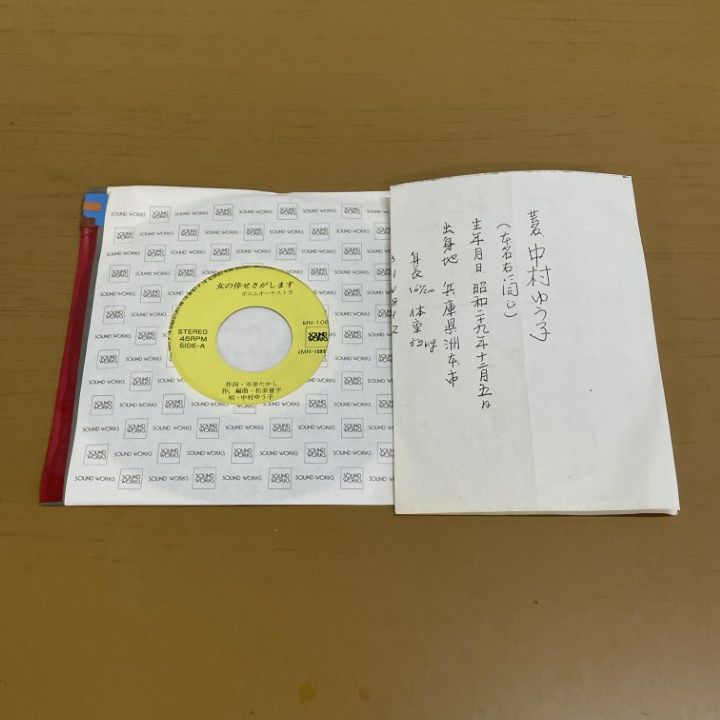 SOUND WORKS
女の倖せさがします
ポエムオーケストラ
STEREO
45RPM
SIDE-A
MN-108
SOUND WORKS
(MN-1086
作詞・吉原たかし
作，編曲・松原曾平
唄・中村ゆう子
中村ゆう子
(本名右に同じ)
生年月日 昭和二十九年十二月五日
出身地 兵庫県洲本市
身長 167cm 体重 52kg